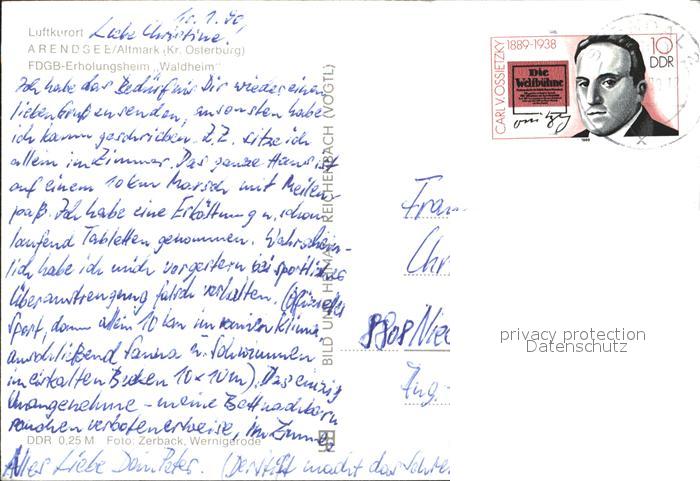 10.1.90
Luftkurort
Liebe Christine!
ARENDSEE/Altmark (Kr. Osterburg)
FDGB-Erholungsheim „Waldheim"
Ich habe das Bedürfnis Dir wieder einen
lieben Gruß zu senden, ansonsten habe
ich kaum geschrieben. Z.Z. sitze ich
allein im Zimmer. Das ganze Haus ist
auf einem 10 km Marsch mit Meilen-
paß. Ich habe eine Erkältung u. schon
laufend Tabletten genommen. Wahrschein-
lich habe ich mich vorgestern bei sportlicher
Überanstrengung falsch verhalten. (
Sport, dann allein 10 km im
anschließend Sauna u. Schwimmen
im eiskalten Becken 10x10m). Das einzig
Unangenehme - meine Bettnachbarn
rauchen verbotenerweise, im Zimmer
DDR 0,25 M Foto: Zerback, Wernigerode
Alles Liebe Dein Peter. (Der Stift macht das
BILD UND HEIMAT REICHENBACH (VOGTL)
CARL V. OSSIETZKY
1889-1938
10
DDR
Die
Weltbühne
1989
Frau
Chr
8808 Nie
privacy protection
Datenschutz